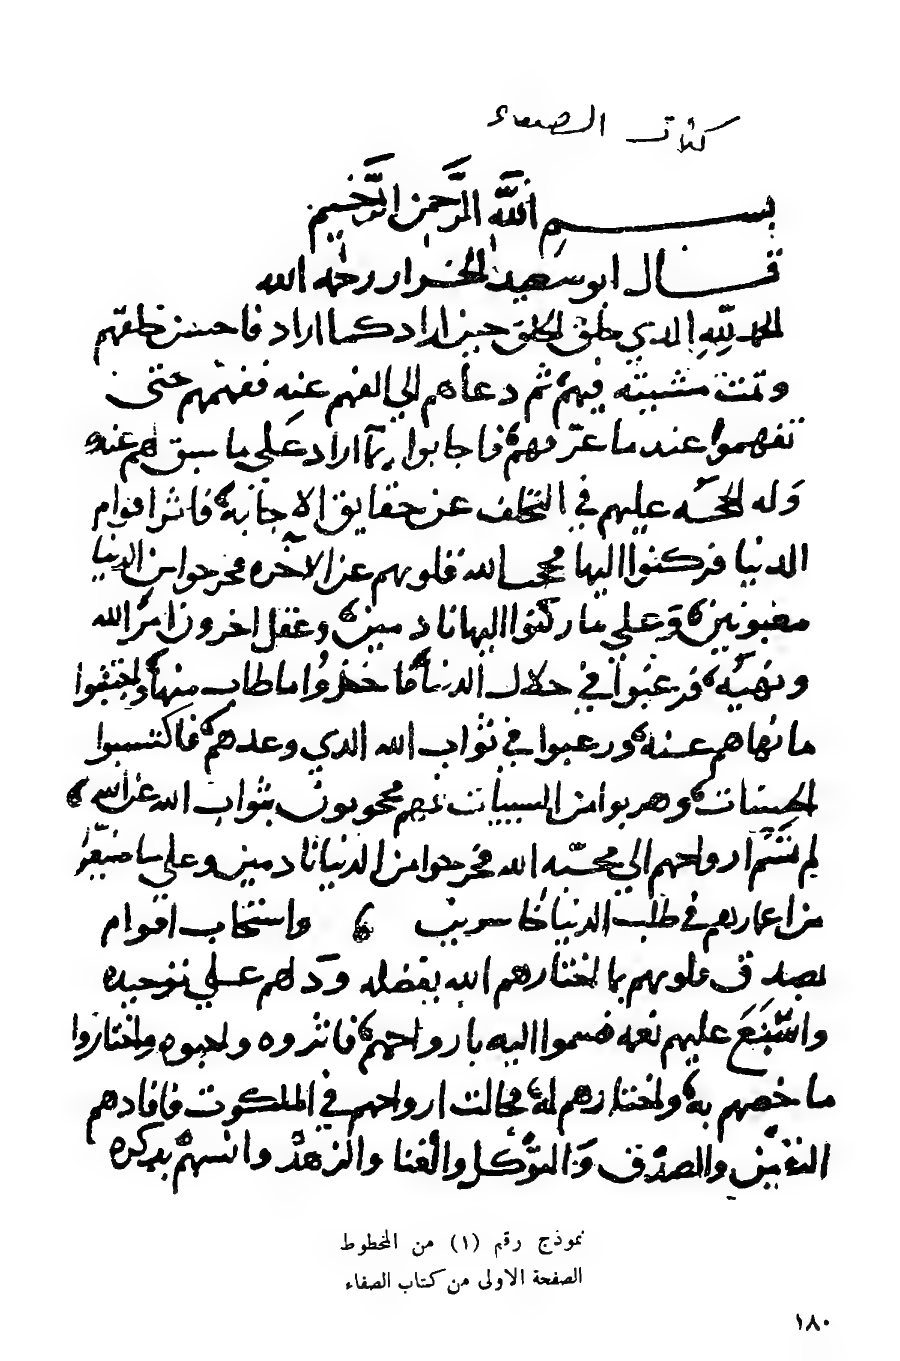 كتاب الصفاء
بسم الله الرحمن الرحيم
قال ابو سعيد الخراز رحمه الله
الحمد لله الذي خلق الخلق حين اراد كما اراد فاحسن خلقهم
وتمت مشيئته فيهم ثم دعاهم الي الفهم عنه ففهمهم حتى
تفهموا عند ما عرفهم فاجابوا بما اراد علي ما سبق لهم عنده
وله الحجه عليهم في التخلف عن حقايق الاجابة فاثر اقوام
الدنيا فركنوا اليها فحجب الله قلوبهم عن الاخره فخرجوا من الدنيا
مغبونين وعلي ما ركنوا اليها نادمين وعقل اخرون امر الله
ونهيه فرغبوا في حلال الدنيا فاخذوا ما طاب منها واجتنبوا
ما نهاهم عنه ورغبوا في ثواب الله الذي وعدهم فاكتسبوا
الحسنات وهربوا من السييات فهم محجوبون بثواب الله عن الله
لم تشم ارواحهم الي محبه الله فخرجوا من الدنيا نادمين وعلي ما ضيعوا
من اعمارهم في طلب الدنيا واستجاب اقوام
بصدق قلوبهم بما اختارهم الله بفضله ودلهم علي توحيده
واسبغ عليهم نعمه فسموا اليه بارواحهم فاثروه واحبوه واختاروا
ما خصهم به واختارهم له فجالت ارواحهم في الملكوت فافادهم
اليقين والصدق والتوكل والغنا والزهد وانسهم بذكره
نموذج رقم (١) من المخطوط
الصفحة الاولى من كتاب الصفاء
١٨٠